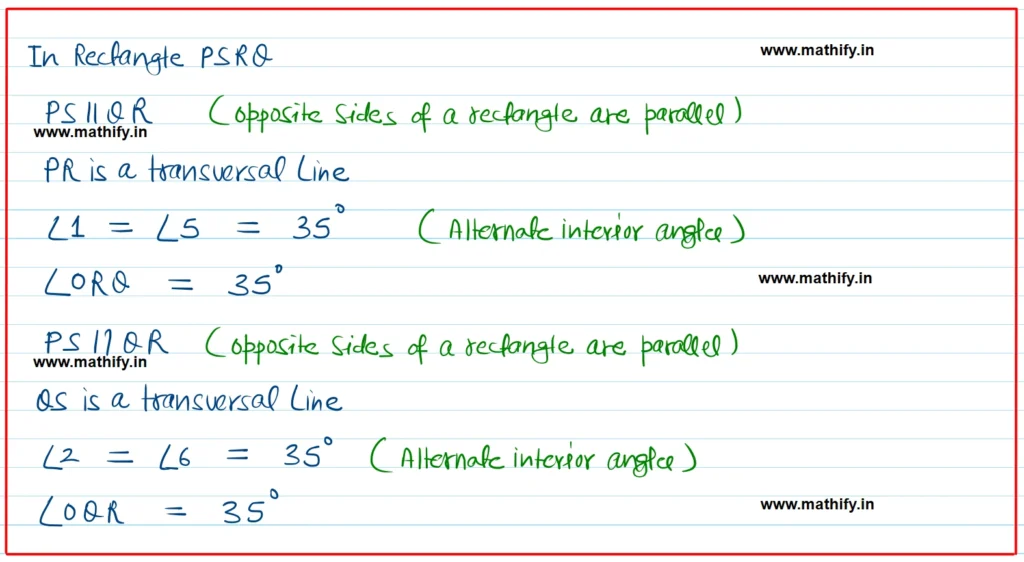 In Rectangle PSRQ
www.mathify.in
PS || QR (opposite sides of a rectangle are parallel)
www.mathify.in
PR is a transversal Line
∠1 = ∠5 = 35° (Alternate interior angle)
∠ORQ = 35°
www.mathify.in
PS || QR (opposite sides of a rectangle are parallel)
www.mathify.in
QS is a transversal Line
∠2 = ∠6 = 35° (Alternate interior angle)
∠OQR = 35°
www.mathify.in